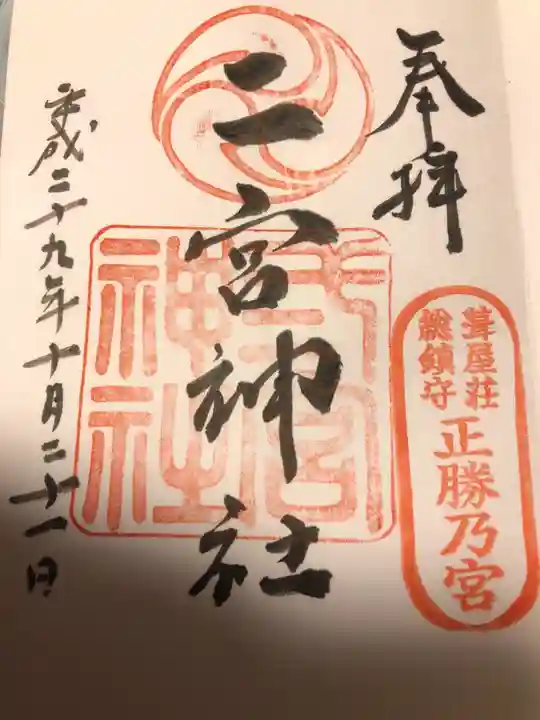 奉拝
葺屋荘
総鎮守
正勝乃宮
二宮神社
二宮神社
平成二十九年十月二十一日